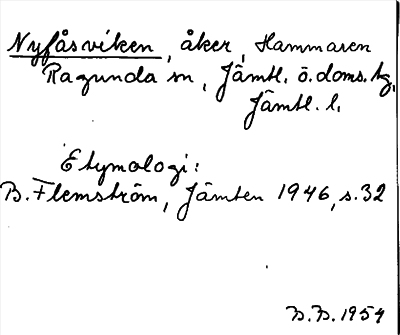 Nyfåsviken, åker, Hammaren
Ragunda sn, Jämtl. ö. doms. hg,
Jämtl. l.
Etymologi:
B. Flemström, Jämten 1946, s. 32
B.B. 1954